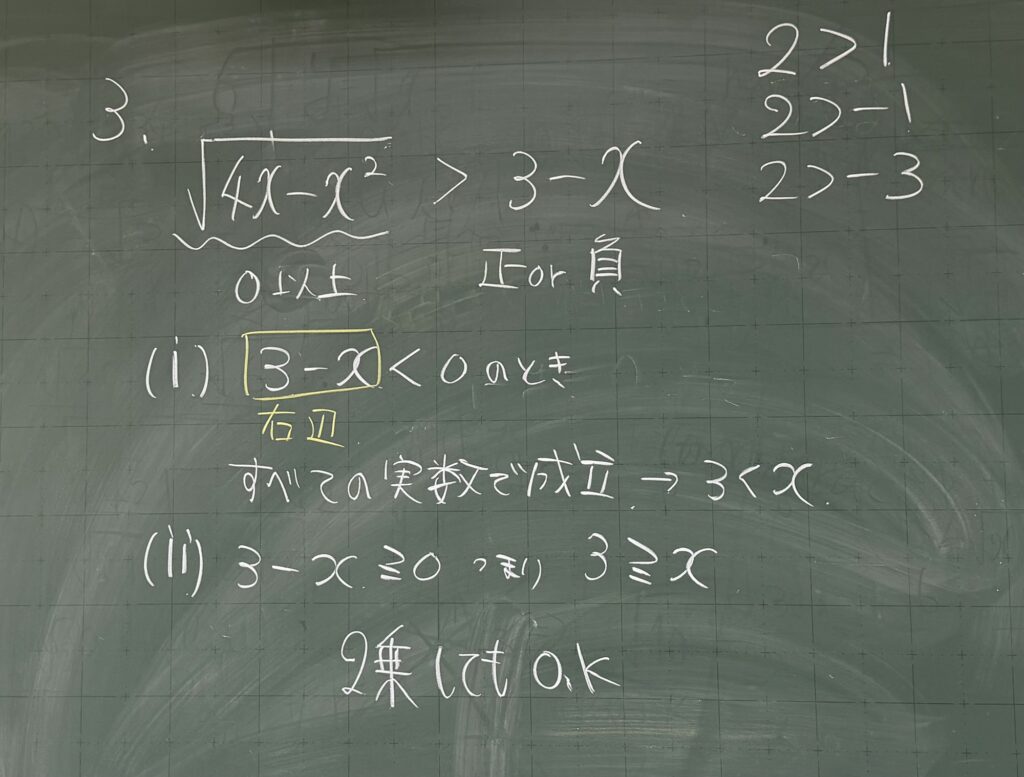 3.
√4x-x² > 3-x
0以上 正or負
2>1
2>-1
2>-3
(i) 3-x<0のとき
右辺
すべての実数で成立→3<x
(ii) 3-x≧0 つまり 3≧x
2乗してもO.K